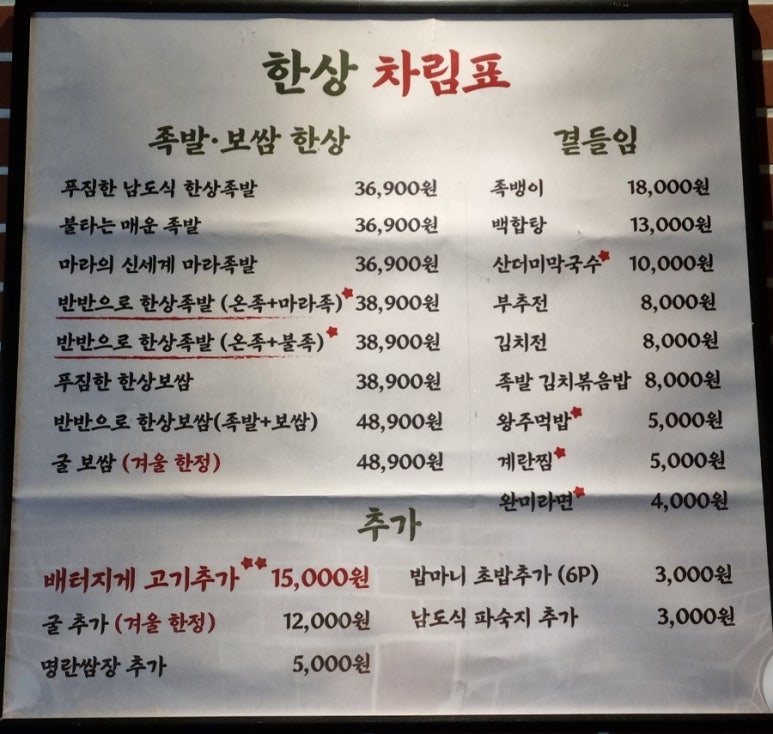 한상 차림표
족발·보쌈 한상
푸짐한 남도식 한상족발 36,900원
불타는 매운 족발 36,900원
마라의 신세계 마라족발 36,900원
반반으로 한상족발 (온족+마라족) 38,900원
반반으로 한상족발 (온족+불족) 38,900원
푸짐한 한상보쌈 38,900원
반반으로 한상보쌈(족발+보쌈) 48,900원
굴 보쌈 (겨울 한정) 48,900원
곁들임
족뱅이 18,000원
백합탕 13,000원
산더미막국수 10,000원
부추전 8,000원
김치전 8,000원
족발 김치볶음밥 8,000원
왕주먹밥 5,000원
계란찜 5,000원
완미라면 4,000원
추가
배터지게 고기추가 15,000원
굴 추가 (겨울 한정) 12,000원
명란쌈장 추가 5,000원
밥마니 초밥추가 (6P) 3,000원
남도식 파숙지 추가 3,000원